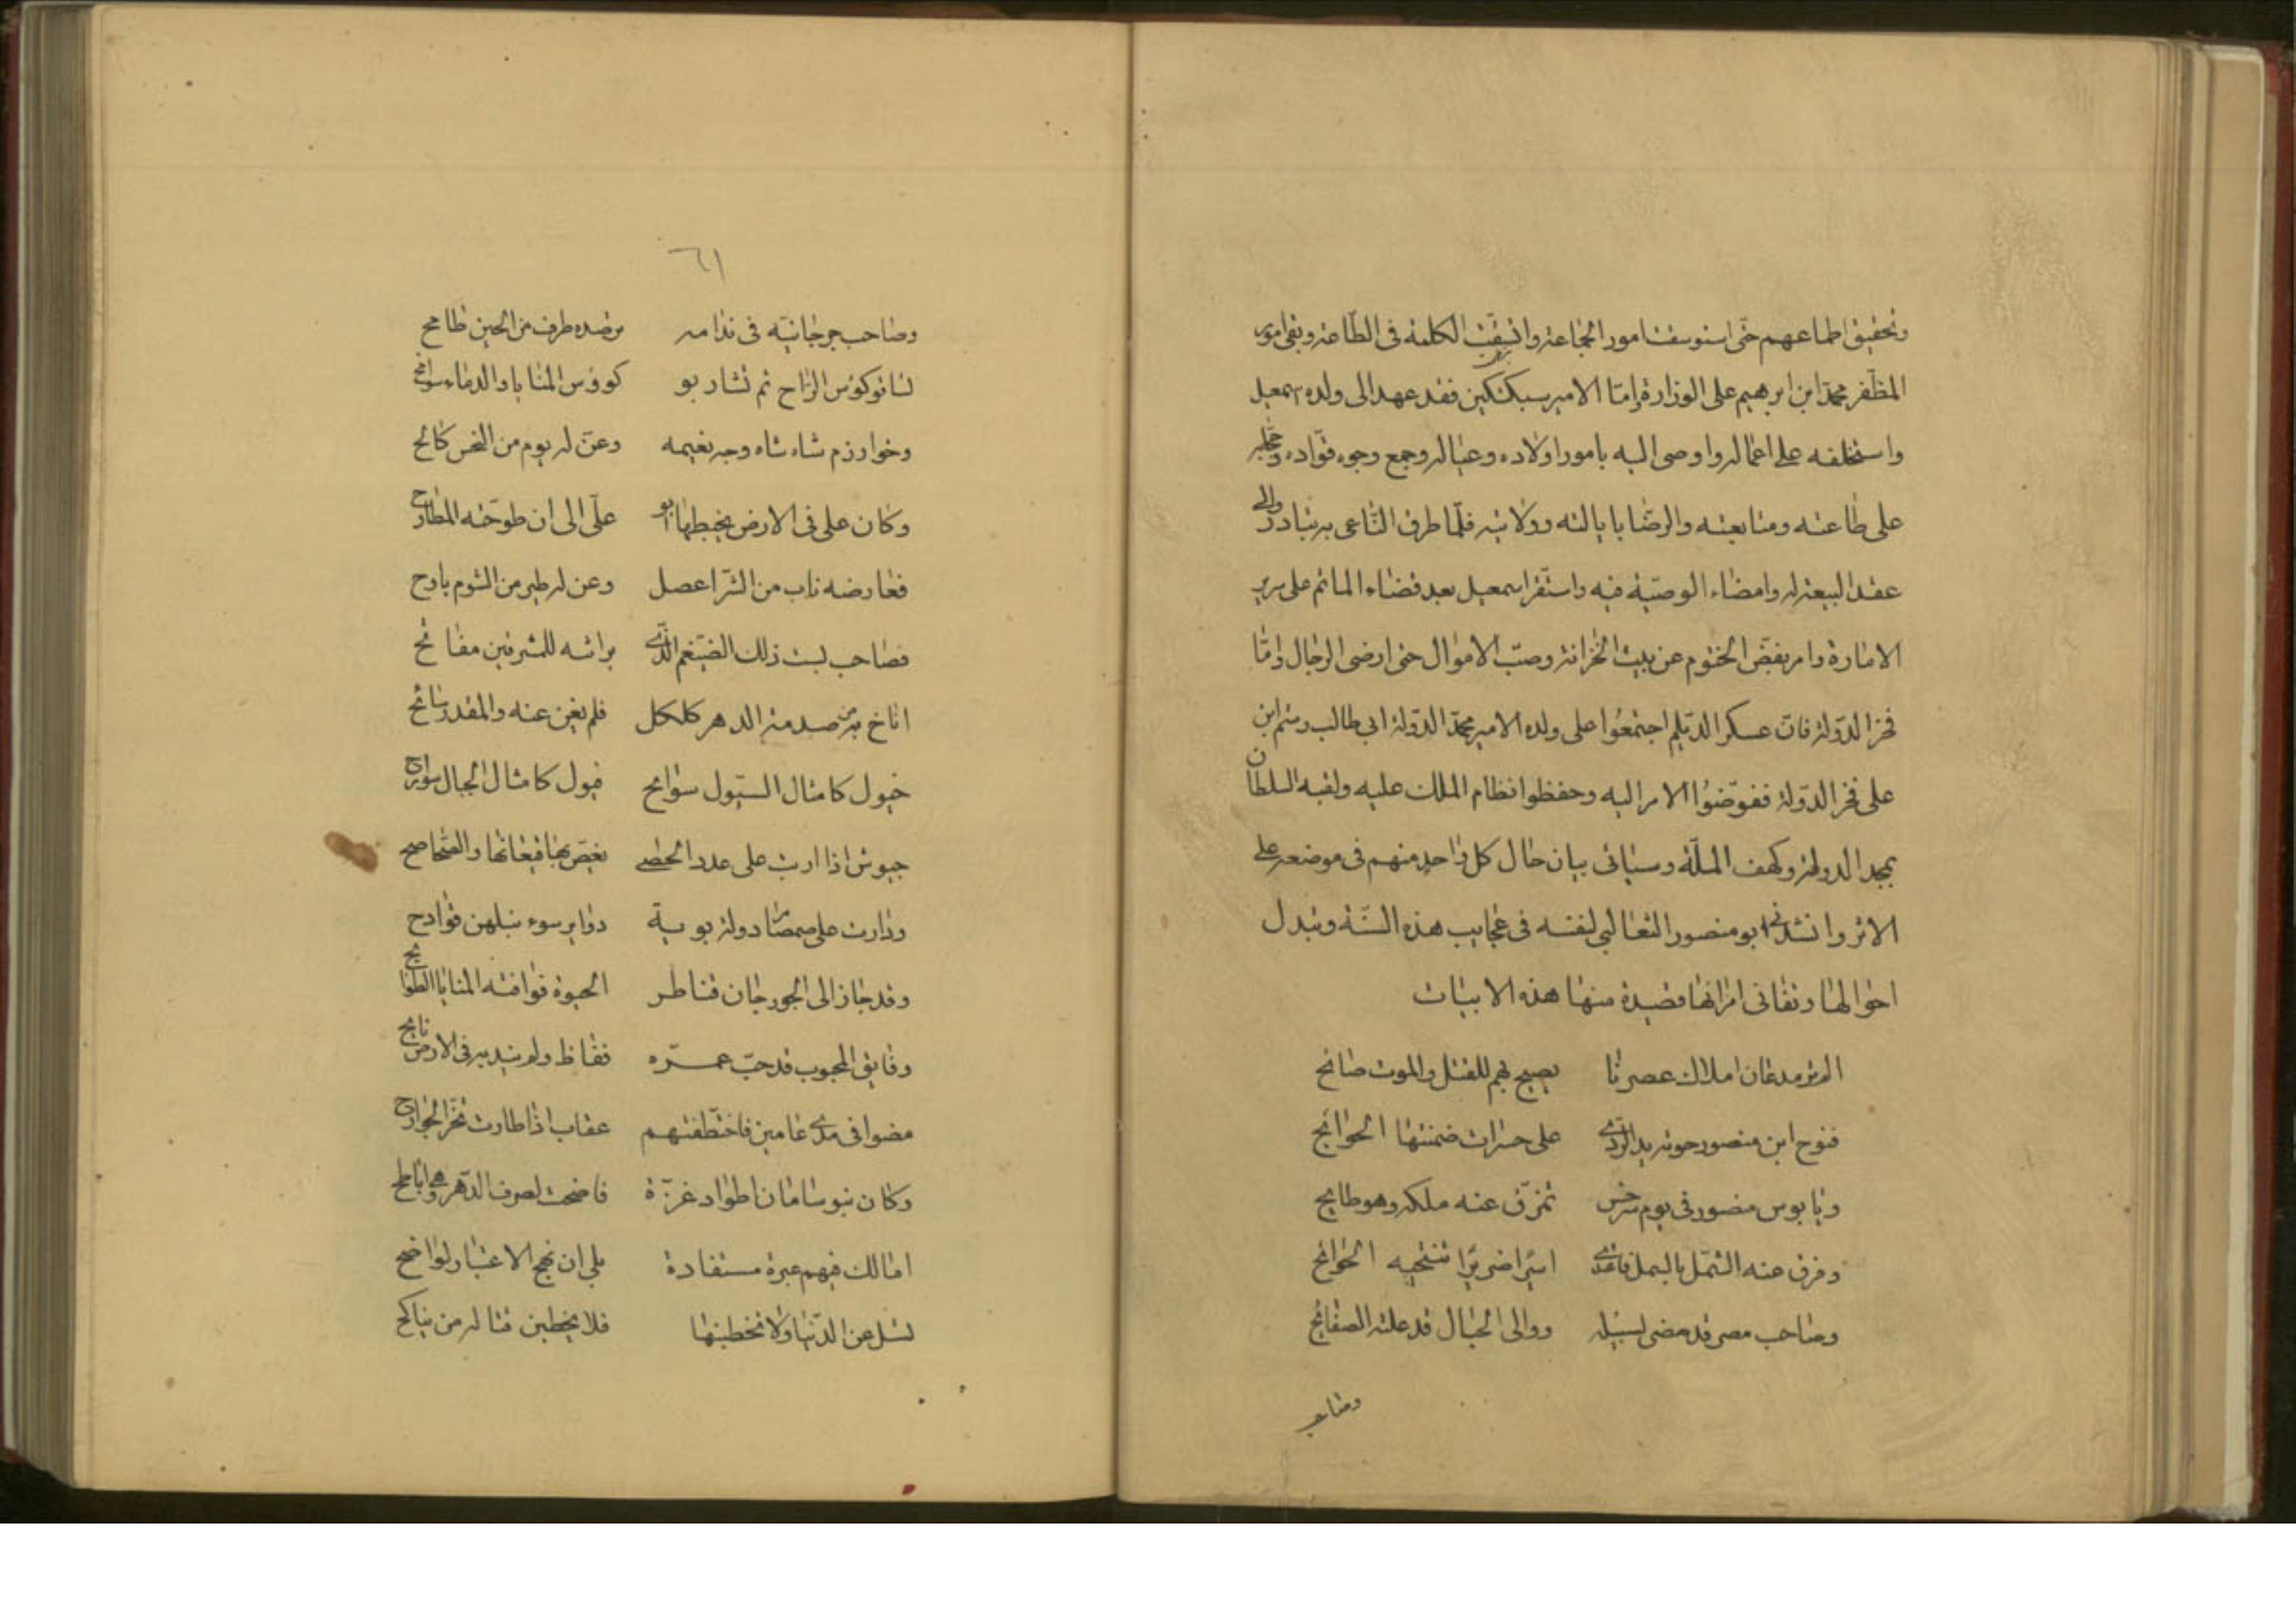 وتحقيق اطماعهم حتّى استوسقت امور الجماعة واتسقت الكلمة فى الطّاعة وبقى ابو
المظفر محمّد ابن ابرهيم على الوزارة وامّا الامير سبكتكين فقد عهد الى ولده اسمعيل
واستخلفه على اعماله واوصى اليه بامور اولاده وعياله وجمع وجوه قوّاده وحجابه
على طاعته ومتابعته والرضا بايالته وولايته فلمّا طرق النّاعى به تبادروا الى
عقد البيعة له وامضاء الوصيّة فيه واستقر اسمعيل بعد قضاء الماتم على سرير
الامارة وامر بفضّ الختوم عن بيت الخزانة وصبّ الاموال حتى ارضى الرجال وامّا
فخر الدّولة فانّ عسكر الدّيلم اجتمعُوا على ولده الامير مجد الدّولة ابى طالب رستم ابن
على فخر الدّولة ففوّضوُا الامر اليه وحفظوا نظام الملك عليه ولقبه السلطان
بمجد الدولة وكهف الملّة وسياتى بيان حال كل واحد منهم فى موضعه على
الاثر وانشدنى ابو منصور الثعالبى لنفسه فى عجايب هذه السّنة وتبدل
احوالها وتفانى امرائها قصيدة منها هذه الابيات
الم تر مذ عامان املاك عصرنا يصيح بهم للقتل والموت صائح
فنوح ابن منصور حوته يد الرّدى على حسرات ضمنتها الجوانح
ويا بوس منصور فى يوم سرخس تمزّق عنه ملكه وهو طايح
وفرق عنه الشّمل بالسمل فاغتدى اسيراً ضريراً تنتحيه الجوائح
وصاحب مصر قد مضى لسبيله ووالى الجبال قد علته الصفائح
وصاحب
٦١
وصاحب جرجانيّة فى ندامه ترصده طرف من الحين طامح
تساقو كؤس الرّاح ثم تشاربو كووس المنايا والدماء سوافح
وخوارزم شاه شاه وجه نعيمه وعنّ له يوم من النحس كالح
وكان على فى الارض يخبطها ابو علىّ الى ان طوحته المطاوح
فعارضه ناب من الشّر اعصل وعن له طير من الشوم بارح
فصاحب بست ذلك الضيغم الّذى براثنه للمشرفين مفاتح
اناخ به من صدمة الدهر كلكل فلم يغن عنه والمقدر سائح
خيول كامثال السيول سوابح فيول كامثال الجبال سوارح
جيوش اذا اربت على عدد الحصى يغصّ بها قيعانها والصّحاصح
ودارت على صمصام دولة بوية دواير سوء نبلهن قوادح
وقد جاز الى الجورجان قناطر الحيوة فوافته المنايا الطوايح
وفايق المجبوب قد جبّ عمره ففاظ ولم يندبه فى الارض نايح
مضوا فى مدى عامين فاختطفتهم عقاب اذا طارت تخر الجوارح
وكان بنو سامان اطواد عزّة فاضحت لصرف الدّهر وهى اباطح
امالك فيهم عبرة مستفادة بلى ان نهج الاعتبار لواضح
تسل عن الدّنيا ولا تخطبنها فلا يخطبن قتاله من يناكح